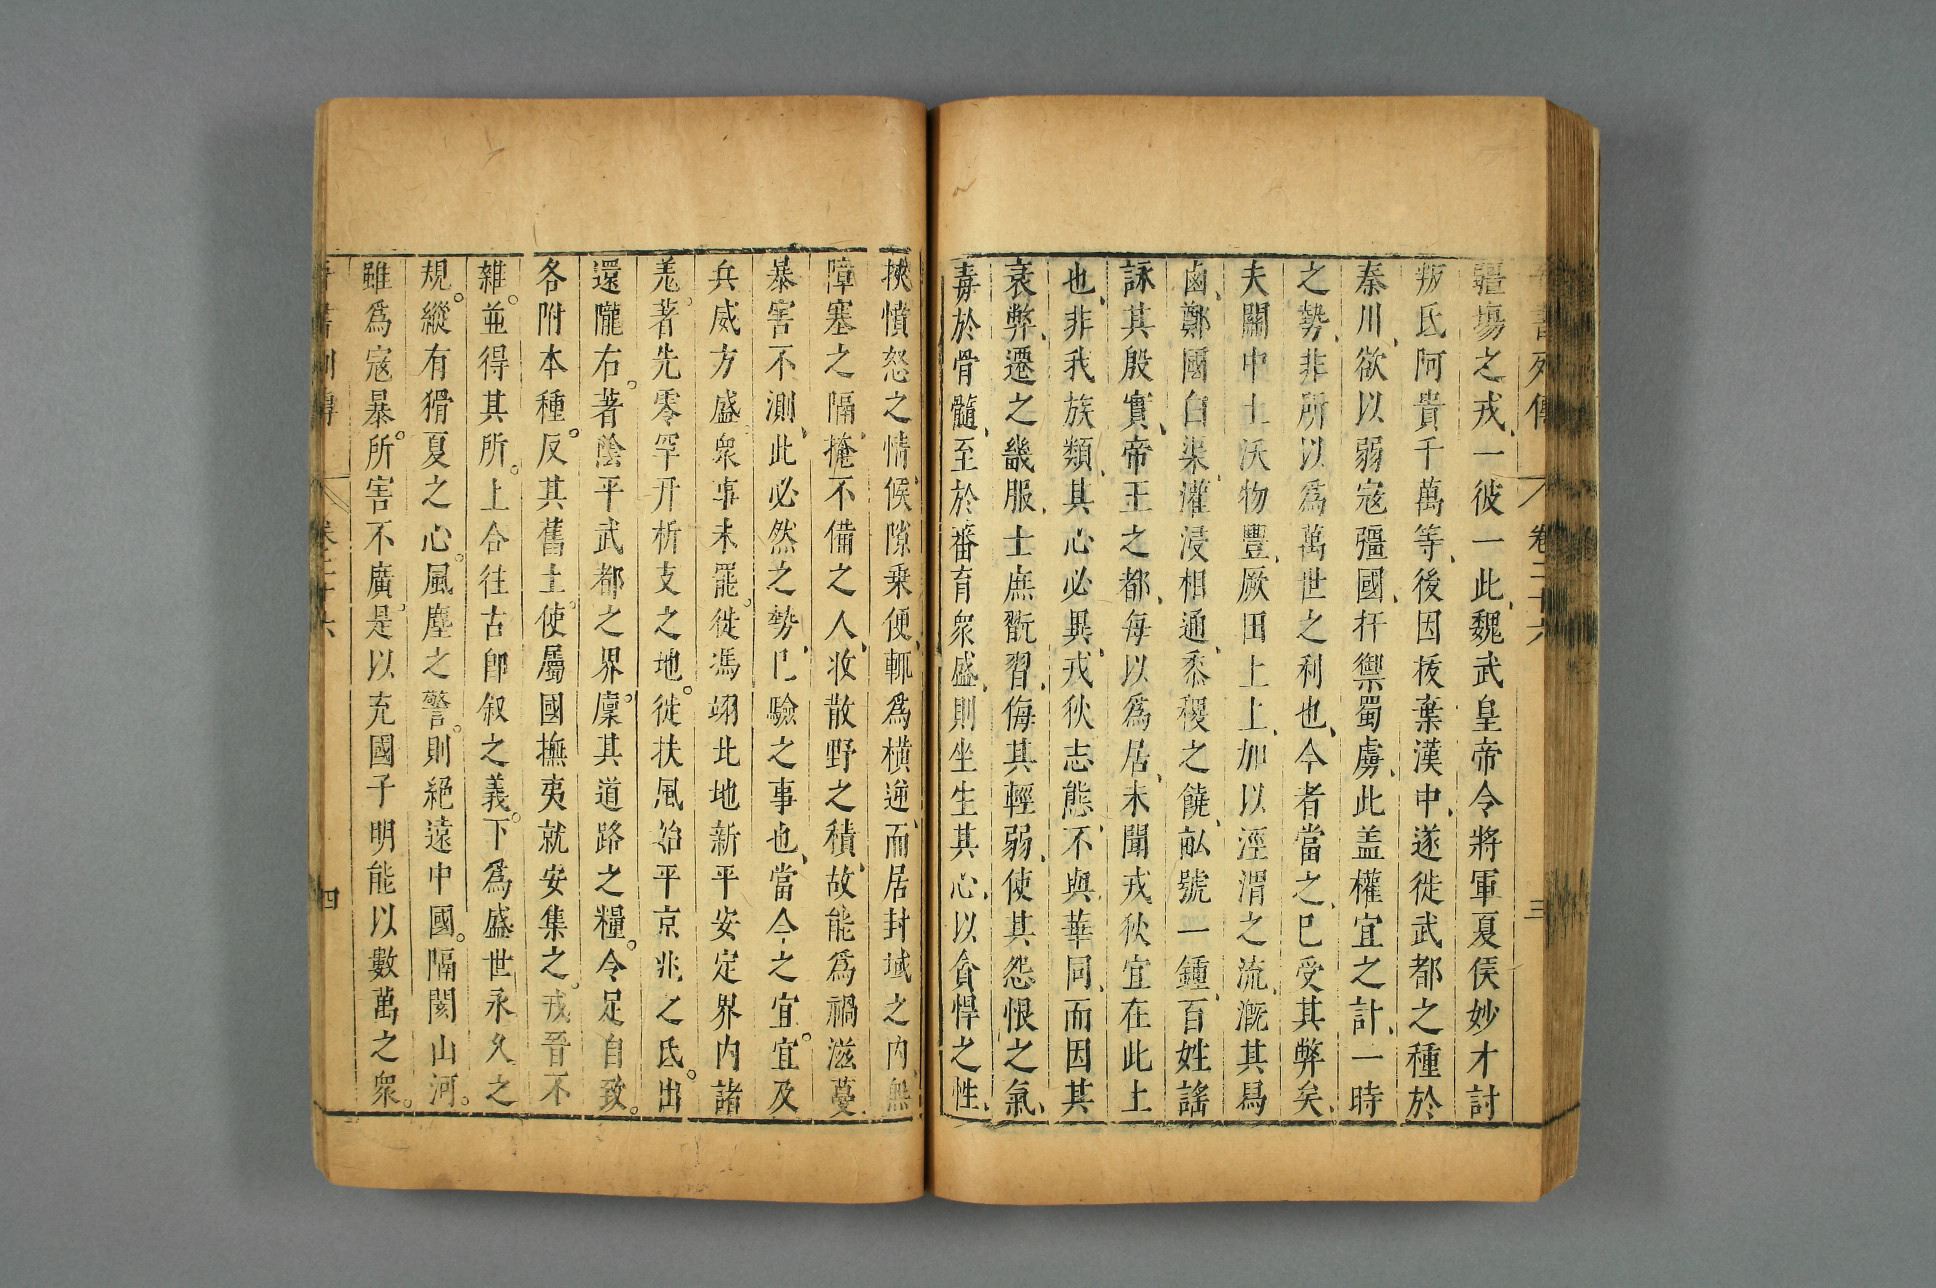 晉書列傳 卷二十六 三
疆塲之戎、一彼一此、魏武皇帝令將軍夏侯妙才討
叛氐阿貴千萬等、後因抜棄漢中、遂徙武都之種於
秦川、欲以弱寇彊國、扞禦蜀虜、此盖權宜之計、一時
之勢、非所以爲萬世之利也、今者當之、巳受其弊矣、
夫關中土沃物豐、厥田上上、加以涇渭之流、漑其舃
鹵、鄭國白渠、灌浸相通、黍稷之饒、畝號一鍾、百姓謠
詠其殷實、帝王之都、每以爲居、未聞戎狄宜在此土
也、非我族類、其心必異、戎狄志態、不與華同、而因其
衰弊、遷之畿服、士庶翫習、侮其輕弱、使其怨恨之氣、
毒於骨髓、至於蕃育衆盛、則坐生其心、以貪悍之性、
挾憤怒之情、候隙乗便、輒爲橫逆、而居封域之内、無
障塞之隔、掩不備之人、收散野之積、故能爲禍滋蔓、
暴害不測、此必然之勢、巳驗之事也、當今之宜。宜及
兵威方盛衆事未罷。徙馮翊北地新平安定界内諸
羌。著先零罕幵析支之地。徙扶風始平京兆之氐。出
還隴右。著陰平武都之界。廩其道路之糧。令足自致。
各附本種。反其舊土。使屬國撫夷就安集之。戎晉不
雜。並得其所。上合往古卽叙之義。下爲盛世永久之
規。縱有猾夏之心。風塵之警。則絕遠中國。隔閡山河。
雖爲寇暴。所害不廣。是以充國子明能以數萬之衆。
晉書列傳 卷二十六 四